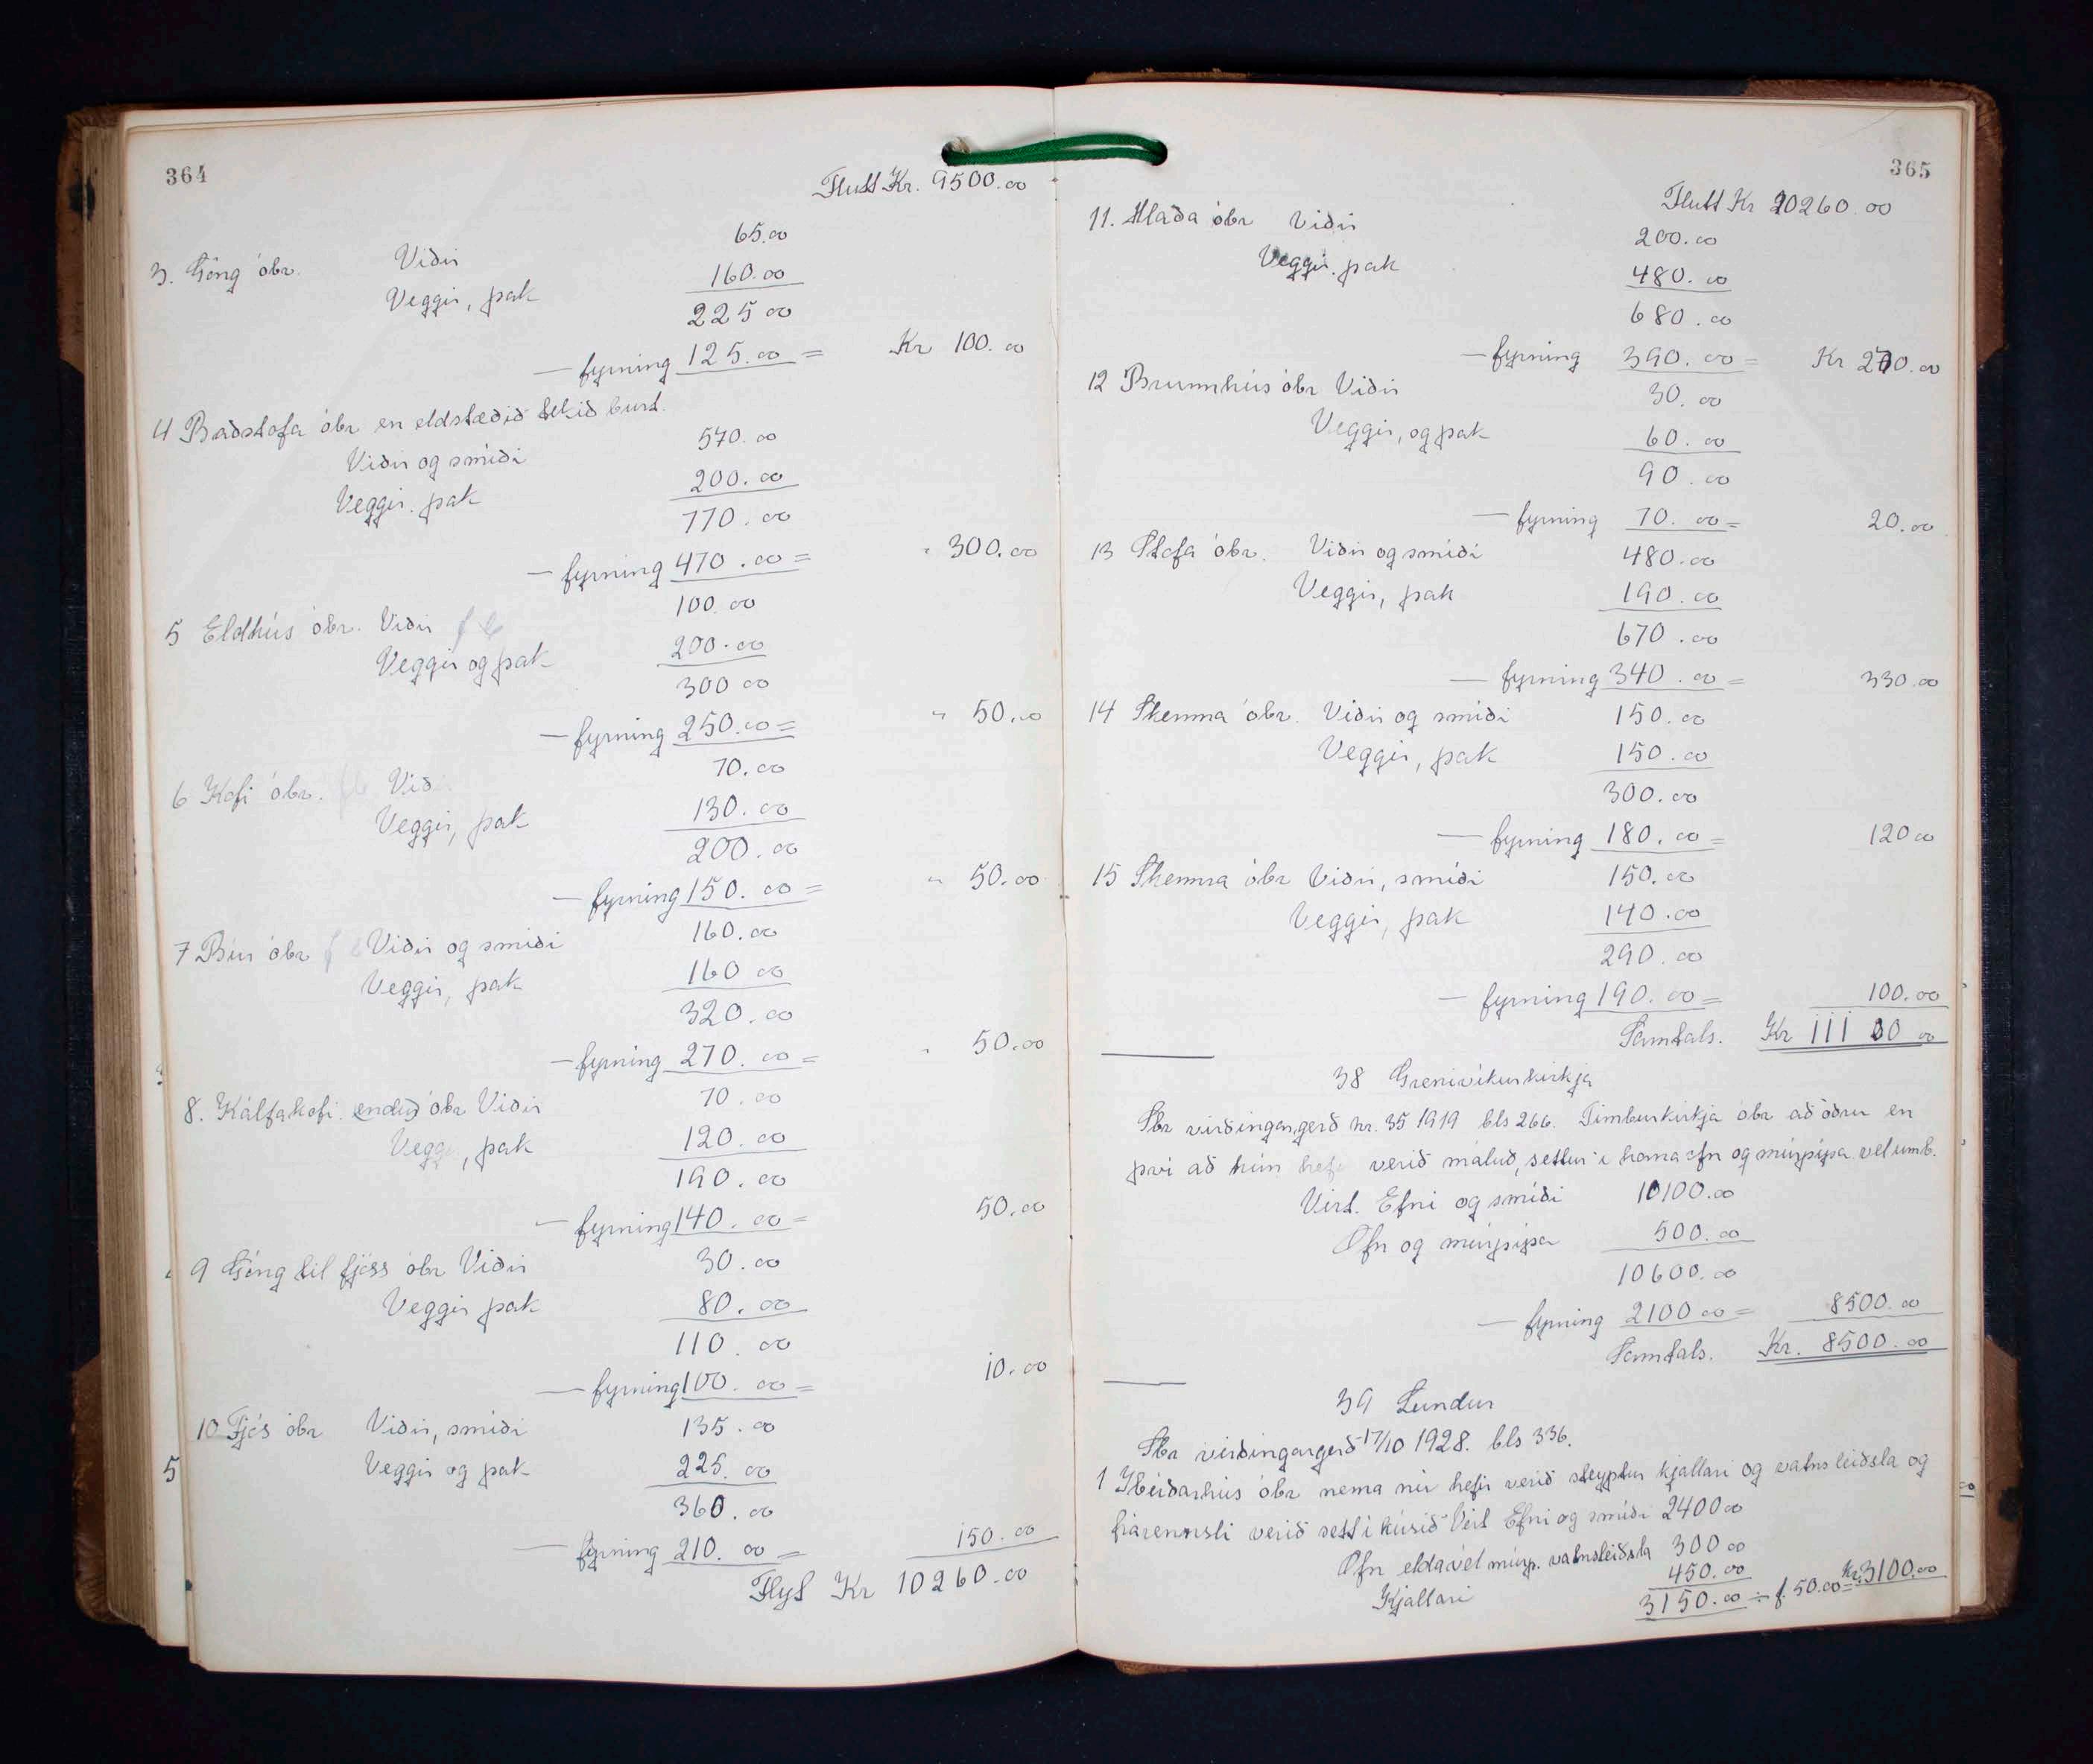 364
Flutt Kr. 9500.00
3. Göng óbr. Viðir 65.00
Veggir, þak 160.00
225 00
— fyrning 125.00 = Kr 100.00
4 Baðstofa óbr en eldstæðið tekið burt.
Viðir og smíði 570.00
Veggir. þak 200.00
770.00
— fyrning 470.00 = " 300.00
5 Eldhús óbr. Viðir 100.00
Veggir og þak 200.00
300 00
— fyrning 250.00 = " 50.00
6 Kofi óbr. Við 70.00
Veggir, þak 130.00
200.00
— fyrning 150.00 = " 50.00
7 Búr óbr Viðir og smíði 160.00
Veggir, þak 160 00
320.00
— fyrning 270.00 = " 50.00
8. Kálfakofi óbr Viðir 70.00
Vegg, þak 120.00
190.00
— fyrning 140.00 = 50.00
9 Göng til fjóss óbr Viðir 30.00
Veggir þak 80.00
110.00
— fyrning 100.00 = 10.00
10 Fjós óbr Viðir, smíði 135.00
Veggir og þak 225.00
360.00
— fyrning 210.00 = 150.00
Flyt Kr 10260.00
5
365
Flutt Kr 10260.00
11. Hlaða óbr Viðir 200.00
Veggir. þak 480.00
680.00
— fyrning 390.00 = Kr 270.00
12 Brunnhús óbr Viðir 30.00
Veggir, og þak 60.00
90.00
— fyrning 70.00 = 20.00
13 Stofa óbr. Viðir og smíði 480.00
Veggir, þak 190.00
670.00
— fyrning 340.00 = 330.00
14 Skemma óbr. Viðir og smíði 150.00
Veggir, þak 150.00
300.00
— fyrning 180.00 = 120 00
15 Skemma óbr Viðir, smíði 150.00
Veggir, þak 140.00
290.00
— fyrning 190.00 = 100.00
Samtals. Kr 111 00 00
38 Grenivíkurkirkja
Sbr virðingargerð nr. 35 1919 bls 266. Timburkirkja óbr að öðru en
því að hún hefir verið máluð, settur í hana ofn og múrpípa. vel umb.
Virt. Efni og smíði 10100.00
Ofn og múrpípa 500.00
10600.00
— fyrning 2100 00 = 8500.00
Samtals. Kr. 8500.00
39 Lundur
Sbr virðingargerð 17/10 1928. bls 336.
1 Íbúðarhús óbr nema nú hefir verið steyptur kjallari og vatnsleiðsla og
frárennsli verið sett í húsið Virt Efni og smíði 2400 00
Ofn eldavél múrp. vatnsleiðsla 300 00
Kjallari 450.00
3150.00 ÷ f. 50.00 = Kr. 3100.00